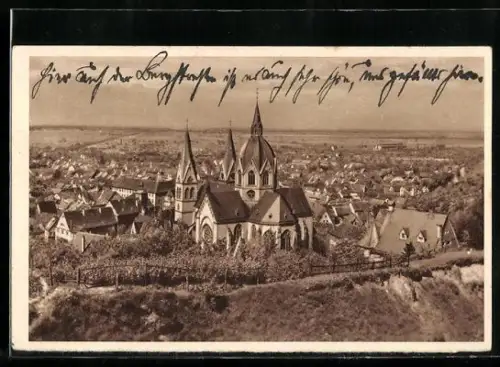 Hier auf der Bergstraße ist es auch sehr schön, uns gefällts hier.